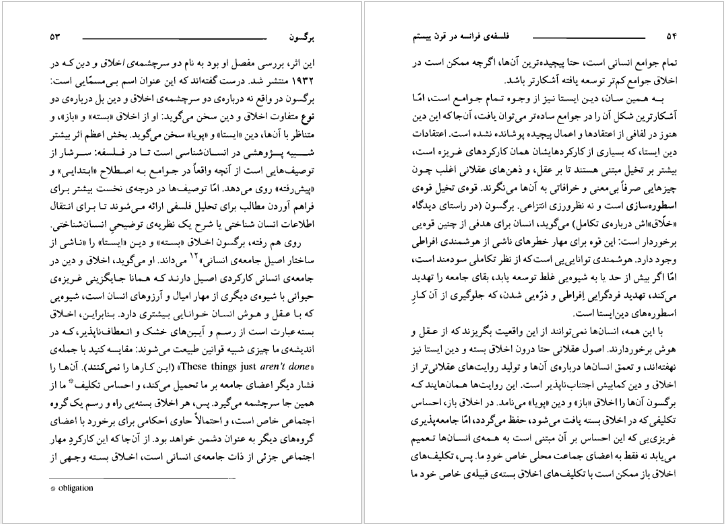 برگسون ۵۳
این اثر، بررسی مفصل او بود به نام دو سرچشمه‌ی اخلاق و دین که در
۱۹۳۲ منتشر شد. درست گفته‌اند که این عنوان اسم بی‌مسمّایی است:
برگسون در واقع نه درباره‌ی دو سرچشمه‌ی اخلاق و دین بل درباره‌ی دو
نوع متفاوت اخلاق و دین سخن می‌گوید: او از اخلاق «بسته» و «باز»، و
متناظر با آن‌ها، دین «ایستا» و «پویا» سخن می‌گوید. بخش اعظم اثر بیشتر
شـبیه پـژوهشی در انسان‌شناسی است تـا در فـلسفه: سـرشار از
توصیف‌هایی است از آنچه واقعاً در جوامـع بـه اصـطلاح «ابتدایی» و
«پیش‌رفته» روی می‌دهد. امّا توصیف‌ها در درجه‌ی نخست بیشتر برای
فراهم آوردن مطالب برای تحلیل فلسفی ارائه می‌شوند تـا بـرای انتقال
اطلاعات انسان شناختی یا شرح یک نظریه‌ی توضیحیِ انسان‌شناختی.
روی هم رفته، برگسون اخلاق «بسته» و دیـن «ایستا» را «نـاشی از
ساختار اصیل جامعه‌ی انسانی»۱۲ می‌داند. او می‌گوید، اخلاق و دین در
جامعه‌ی انسانی کارکردی اصیل دارنـد کـه هـمانا جـایگزینی غریزه‌ی
حیوانی با شیوه‌ی دیگری از مهار امیال و آرزوهای انسان است، شیوه‌یی
که بـا عـقل و هـوش انسان خـوانایی بیشتری دارد. بنـابراین، اخلاق
بسته عبارت است از رسـم و آیـین‌های خشک و انـعطاف‌ناپذیر، کـه در
اندیشه‌ی ما چیزی شبیه قوانین طبیعت می‌شوند: مقایسه کنید با جمله‌ی
«These things just aren't done» (این کـارها را نمی‌کنند). آن‌هـا را
فشار دیگر اعضای جامعه بر ما تحمیل می‌کند، و احساس تکلیف* ما از
همین جا سرچشمه می‌گیرد. پس، هر اخلاق بسته‌یی راه و رسم یک گروه
اجتماعی خاص است، و احتمالاً حاوی احکامی برای برخورد با اعضای
گروه‌های دیگر به عنوان دشمن خواهد بود. از آن‌جا که این کارکردِ مهار
اجتماعی جزئی از ذات جامعه‌ی انسانی است، اخـلاق بسـته وجـهی از
* obligation
۵۴ فلسفه‌ی فرانسه در قرن بیستم
تمام جوامع انسانی است، حتا پیچیده‌ترین آن‌ها، اگرچه ممکن است در
اخلاق جوامع کم‌تر توسعه یافته آشکارتر باشد.
بـه هـمین سـان، دیـن ایستا نیز از وجـوه تـمام جـوامـع است، امّا
آشکارترین شکل آن را در جوامع ساده‌تر می‌توان یافت، آن‌جا که این دین
هنوز در لفافی از اعتقادها و اعمال پیچیده پوشانده نشده است. اعتقادات
دین ایستا، که بسیاری از کارکردهایشان همان کارکردهای غریزه است،
بیشتر بر تخیل مبتنی هستند تا بر عقل، و ذهن‌های عقلانی اغلب چون
چیزهایی صرفاً بی‌معنی و خرافاتی به آن‌ها می‌نگرند. قوه‌ی تخیل قوه‌ی
اسطوره‌سازی است و نه نظرورزی انتزاعی. برگسون (در راستای دیدگاه
«خلّاق»اش درباره‌ی تکامل) می‌گوید، انسان برای هدفی از چنین قوه‌یی
برخوردار است: این قوه برای مهار خطرهای ناشی از هوشمندی افراطی
وجود دارد. هوشمندی توانایی‌یی است که از نظر تکاملی سودمند است،
امّا اگر بیش از حد یا به شیوه‌یی غلط توسعه یابد، بقای جامعه را تهدید
می‌کند، تهدید فردگرایی اِفراطی و ذرّه‌یی شدن، که جلوگیری از آن کـارِ
اسطوره‌های دین‌ایستا است.
با این همه، انسان‌ها نمی‌توانند از این واقعیت بگریزند که از عـقل و
هوش برخوردارند. اصول عقلانی حتا درون اخلاق بسته و دین ایستا نیز
نهفته‌اند، و تعمق انسان‌ها درباره‌ی آن‌ها و تولید روایت‌های عقلانی‌تر از
اخلاق و دین کمابیش اجتناب‌ناپذیر است. این روایت‌ها همان‌هایند کـه
برگسون آن‌ها را اخلاق «باز» و دین «پویا» می‌نامد. در اخلاق باز، احساس
تکلیفی که در اخلاق بسته یافت می‌شود، حفظ می‌گردد، امّا جامعه‌پذیری
غریزی‌یی که این احساس بر آن مبتنی است به هـمه‌ی انسـان‌ها تـعمیم
می‌یابد نه فقط به اعضای جماعت محلی خاص خودِ ما. پس، تکلیف‌های
اخلاق باز ممکن است با تکلیف‌های اخلاق بسته‌ی قبیله‌ی خاص خود ما